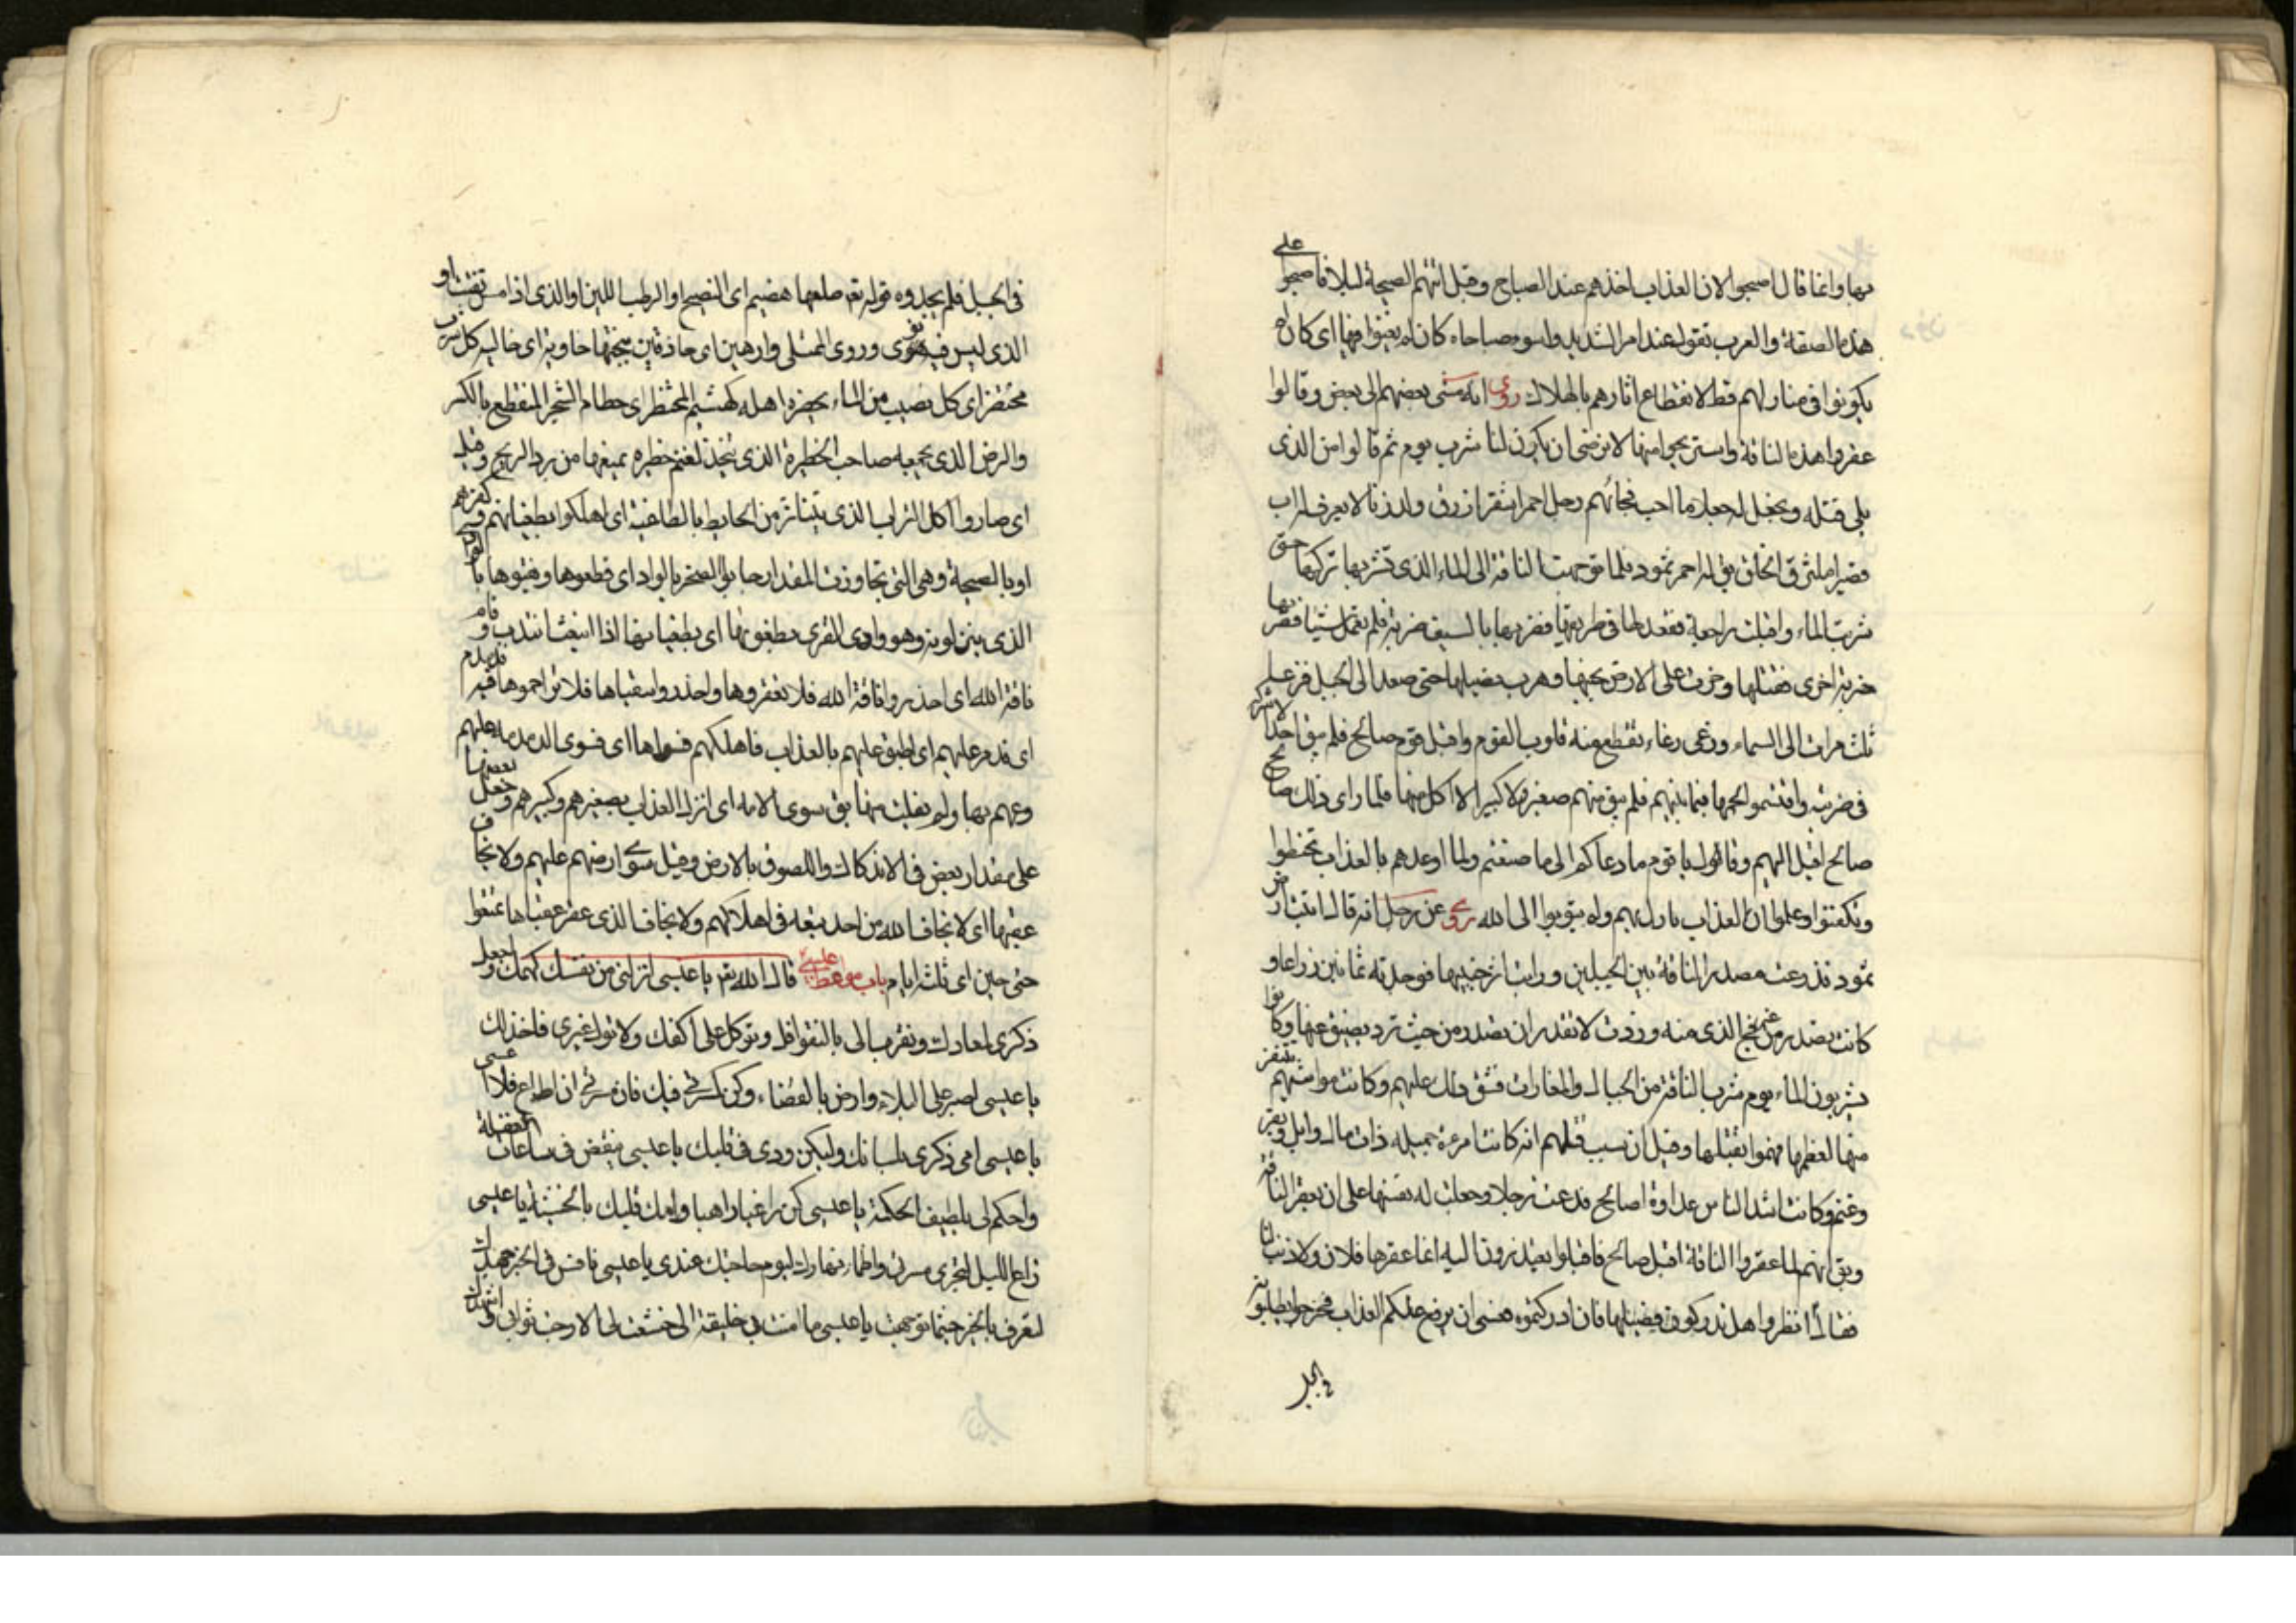 بها وانما قال اصبحوا لان العذاب اخذهم عند الصباح وقيل اتتهم الصيحة ليلا فاصبحوا على
هذه الصفة والعرب تقول عند الامر الشديد واسوء صباحاه كان لم يغنوا فيها اى كان لم
يكونوا فى منازلهم قط لانقطاع اثارهم بالهلاك روى انه مشى بعضهم الى بعض وقالوا
عقروا هذه الناقة واستريحوا منها لا نرضى ان يكون لنا شرب يوم ثم قالوا من الذى
يلى قتله ونجعل له جعلا ما احب فجائهم رجل احمر اشقر ازرق ولد زنا لا يعرف له اب
حتى تركها تشربها الذى الماء الى الناقة توجهت فلما ثمود احمر له يق
شربت الماء واقبلت راجعة فقعد لها فى طريقها فضربها بالسيف ضربة فلم تعمل شيئا فضربها
ضربة اخرى فقتلها وخرت على الارض بجنبها وهرب فصيلها حتى صعد الى الجبل فرغا
ثلث مرات الى السماء ورغى رغاء تقطع منه قلوب القوم واقبل قوم صالح فلم يبق احد الا شركه
فى ضربته واقتسموا لحمها فيما بينهم فلم يبق منهم صغير ولا كبير الا اكل منها فلما راى ذلك صالح
صالح اقبل اليهم وقال يا قوم ما دعاكم الى ما صنعتم ولما اوعدهم بالعذاب تحنطوا
وتكفنوا وعلموا ان العذاب نازل بهم ولم يتوبوا الى الله روى عن رجل انه قال اتيت ارض
ثمود فذرعت مصدر الناقة بين الجبلين ورايت اثر جنبيها فوجدته ثمانين ذراعا و
كانت تصدر من غير الفج الذى منه وردت لا تقدر ان تصدر من حيث ترد يضيق عنها وكانوا
يشربون الماء يوم شرب الناقة من الجبال والمغارات فشق ذلك عليهم وكانت مواشيهم تنفر
منها لعظمها فهموا بقتلها وقيل ان سبب قتلهم انه كانت امرءة جميلة ذات مال وابل وبقر
وغنم وكانت اشد الناس عداوة لصالح فدعت رجلا وجعلت له نفسها على ان يعقر الناقة
ويق انهم لما عقروا الناقة اقبل صالح فاقبلوا يعتذرون اليه انما عقرها فلان ولا ذنب لنا
فقال انظروا هل تدركون فصيلها فان ادركتموه فعسى ان يرفع عنكم العذاب فخرجوا يطلبونه
فى الجبل
فى الجبل فلم يجدوه قوله تع طلعها هضيم اى النضيج او الرطب اللين او الذى اذا مس تفتت او
الذى ليس فيه نوى وروى المتدلى فارهين اى حاذقين بنحتها خاوية اى خالية كل شرب
محتضر اى كل نصيب من الماء يحضره اهله كهشيم المحتظر اى حطام الشجر المنقطع بالكسر
والرض الذى يجمعه صاحب الحظيرة الذى يتخذ لغنمه حظيرة يمنعها من برد الريح وقيل
اى صاروا كالتراب الذى يتناثر من الحايط بالطاغية اى اهلكوا بطغيانهم وكفرهم
او بالصيحة وهى التى تجاوزت المقدار جابوا الصخر بالواد اى قطعوها ونقبوها بالواد
الذى ينزلونه وهو وادى القرى بطغويها اى بطغيانها اذا انبعث انتدب وقام
ناقة الله اى احذروا ناقة الله فلا تعقروها واحذروا سقياها فلا تزاحموها فيه فدمدم
اى فدمدم عليهم اى اطبق عليهم بالعذاب فاهلكهم فسويها اى فسوى الدمدمة عليهم
وعمهم بها ولم يفلت منها احد يق سوى الامة اى انزل العذاب بصغيرهم وكبيرهم وجعل بعضها
على مقدار بعض فى الاندكاك واللصوق بالارض وقيل سوى ارضهم عليهم ولا يخاف
عقبيها اى لا يخاف الله من احد تبعة فى اهلاكهم ولا يخاف الذى عقر عقباها تمتعوا
حتى حين اى ثلثة ايام باب مواعظ عليسى قال الله تع يا عيسى انزلنى من نفسك كهمك واجعل
ذكرى لمعادك وتقرب الى بالنوافل وتوكل على اكفك ولا تول غيرى فاخذلك
يا عيسى اصبر على البلاء وارض بالقضاء وكن كمسرتى فيك فان مسرتى ان اطاع فلا اعصى
يا عيسى احى ذكرى بلسانك وليكن ودى فى قلبك يا عيسى تيقظ فى ساعات الغفلة
واحكم لى بلطيف الحكمة يا عيسى كن راغبا راهبا وامت قلبك بالخشية يا عيسى
راع الليل لتحرى مسرتى واظماء نهارك ليوم حاجتك عندى يا عيسى نافس فى الخير جهدك
لتعرف بالخير حيثما توجهت يا عيسى ما امنت بى خليقة الا خشعت لى الا رجت ثوابى واشهدك